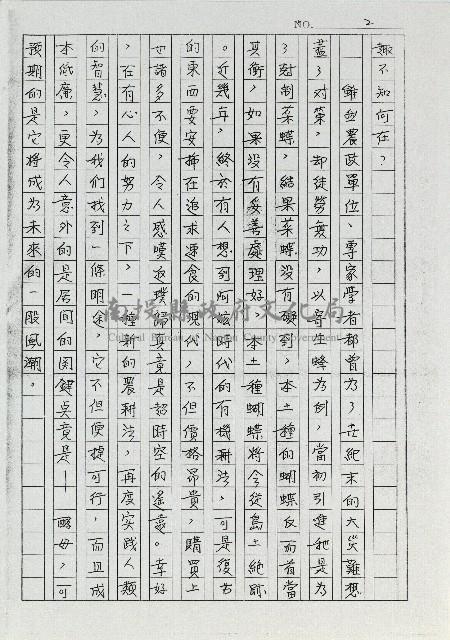 NO. 2
趣不知何在？
雖然農政單位、專家學者都曾為了世紀末的大災難想
盡了对策，却徒勞無功，以寄生蜂為例，當初引進牠是为
了對制菜蝶，結果菜蝶沒有碰到，本土種的蝴蝶反而首當
其衝，如果没有妥善處理好，本土種蝴蝶將令從島上絕跡
。近幾年，終於有人想到阿公時代的有機耕法，可是復古
的東西要安插在追求速食的現代，不但價格昂貴，購買上
也諸多不便，令人感嘆返璞歸真竟是超時空的遙遠。幸好
，在有心人的努力之下，一種新的農耕法，再度实践人類
的智慧，为我们找到一條明途，它不但便捷可行，而且成
本低廉，更令人意外的是居间的関鍵点竟是──酵母，可
预期的是它将成为未來的一股風潮。
南投縣政府文化局
Cultural Bureau of Nantou County Government